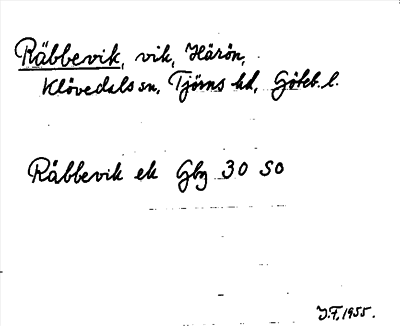 Räbbevik, vik, Härön,
Klövedals sn, Tjörns hd, Göteb. l.
Räbbevik ek Gbg 30 SO
J.F. 1955.